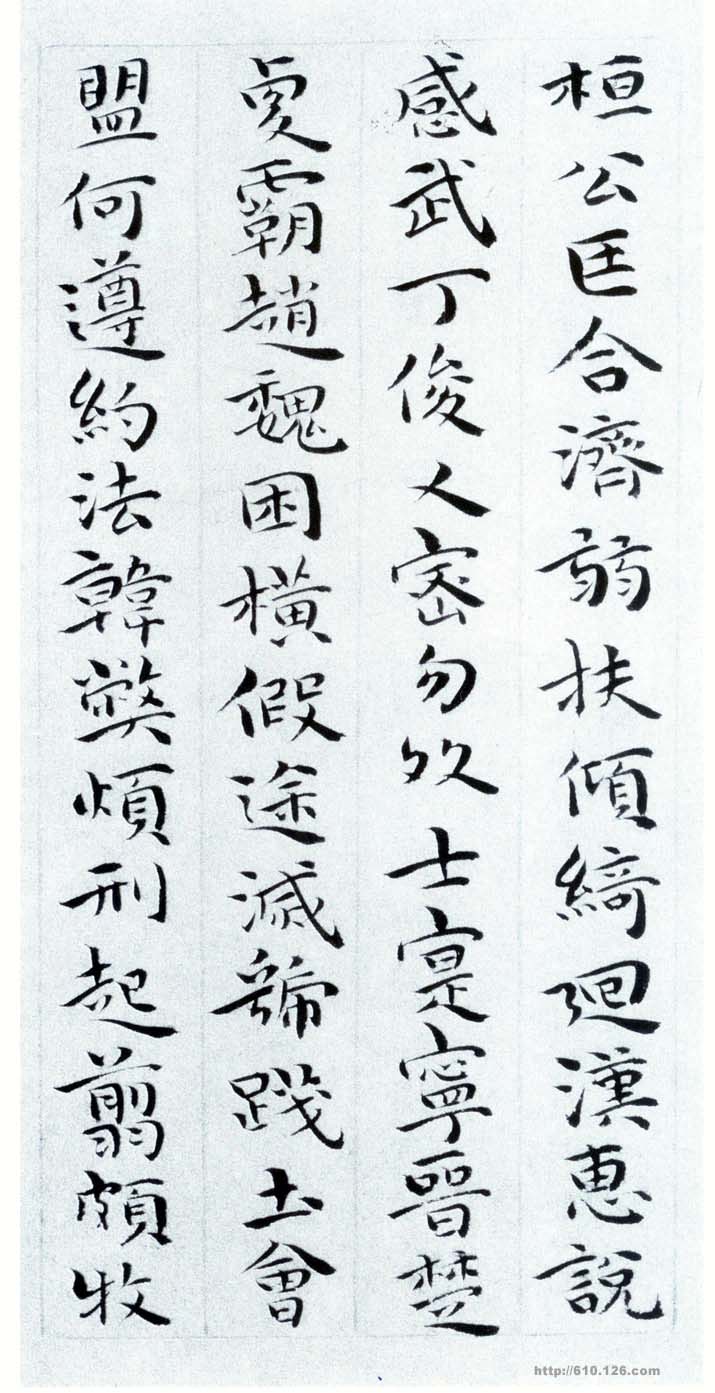 桓公匡合濟弱扶傾綺迴漢惠說
感武丁俊乂密勿多士寔寧晉楚
更霸趙魏困橫假途滅虢踐土會
盟何遵約法韓弊煩刑起翦頗牧
http://610.126.com